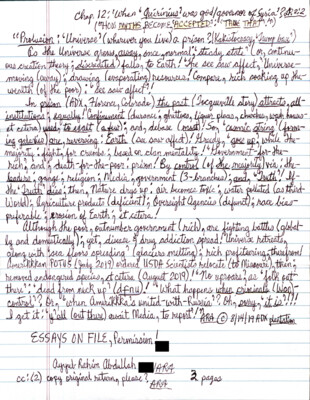 Chap. 12: "When "Quirinius" was got/governor of Syria?
(How MYTHS BECOME "ACCEPTED" "TALK THAT")
"Prolusion" "Universe" (wherever you live) a prison?
Do the Universe grow, away, once, normal, "steady state" (or, continu-
ous creation theory; discredited) falls, to Earth? The see saw effect, Universe-
moving (away); drawing (evaporating) resources. Compare, rich soaking up the
wealth (of the poor): "See saw effect"!
In prison (ADX, Florence, Colorado) the past (Tocqueville story) attracts, all-
institutions; equally. Confinement (durance; ghettos, liquor places, churches, work houses
et cetera) used, to exalt (a few); and, debase (most)! Son, "cosmic string (form-
ing galaxies) are, reversing. Earth (see saw effect)! Greedy, give up, while the-
majority; fight, for crumbs; bend or clan mentality! Government-for-the-
rich, and, death-for-the-poor; prison! By control (of the majority) via; the-
leader; gangs; religion; Media; government (3-branches); and, "Truth." If-
the "Truth" dies; then, Nature dries up. Air become toxic; water, polluted (as third-
World); Agriculture products (deficient); Oversight Agencies (defunct); race bias-
preferable; erosion of Earth; et cetera!
Although the poor, outnumber government (rich), are fighting battles (global-
ly and domestically); yet, disease & drug addiction spread! Universe retreats,
along with ice floes spreading (glaciers melting); rich profiteering, therefrom!
AmeriKKKan POTUS (July 2019) ordered USDA Scientists relocate (to Missouri); then-
removed endangered species, et cetera (August 2019)! No oppose; as folk put-
there: "dead from neck up" (dfnu)! "What happens when criminals (War)
control"? Or, "when AmeriKKKa's united-with-Russia"? Oh, sorry, "it is"!!!
I get it: "y'all (out there) await Media, to report! ARA © 8/14/19 ADX plantation
ESSAYS ON FILE, Permission!
Ayyub Rahim Abdullah /ARA
cc: (2) copy original return, please! ARA 2 pages